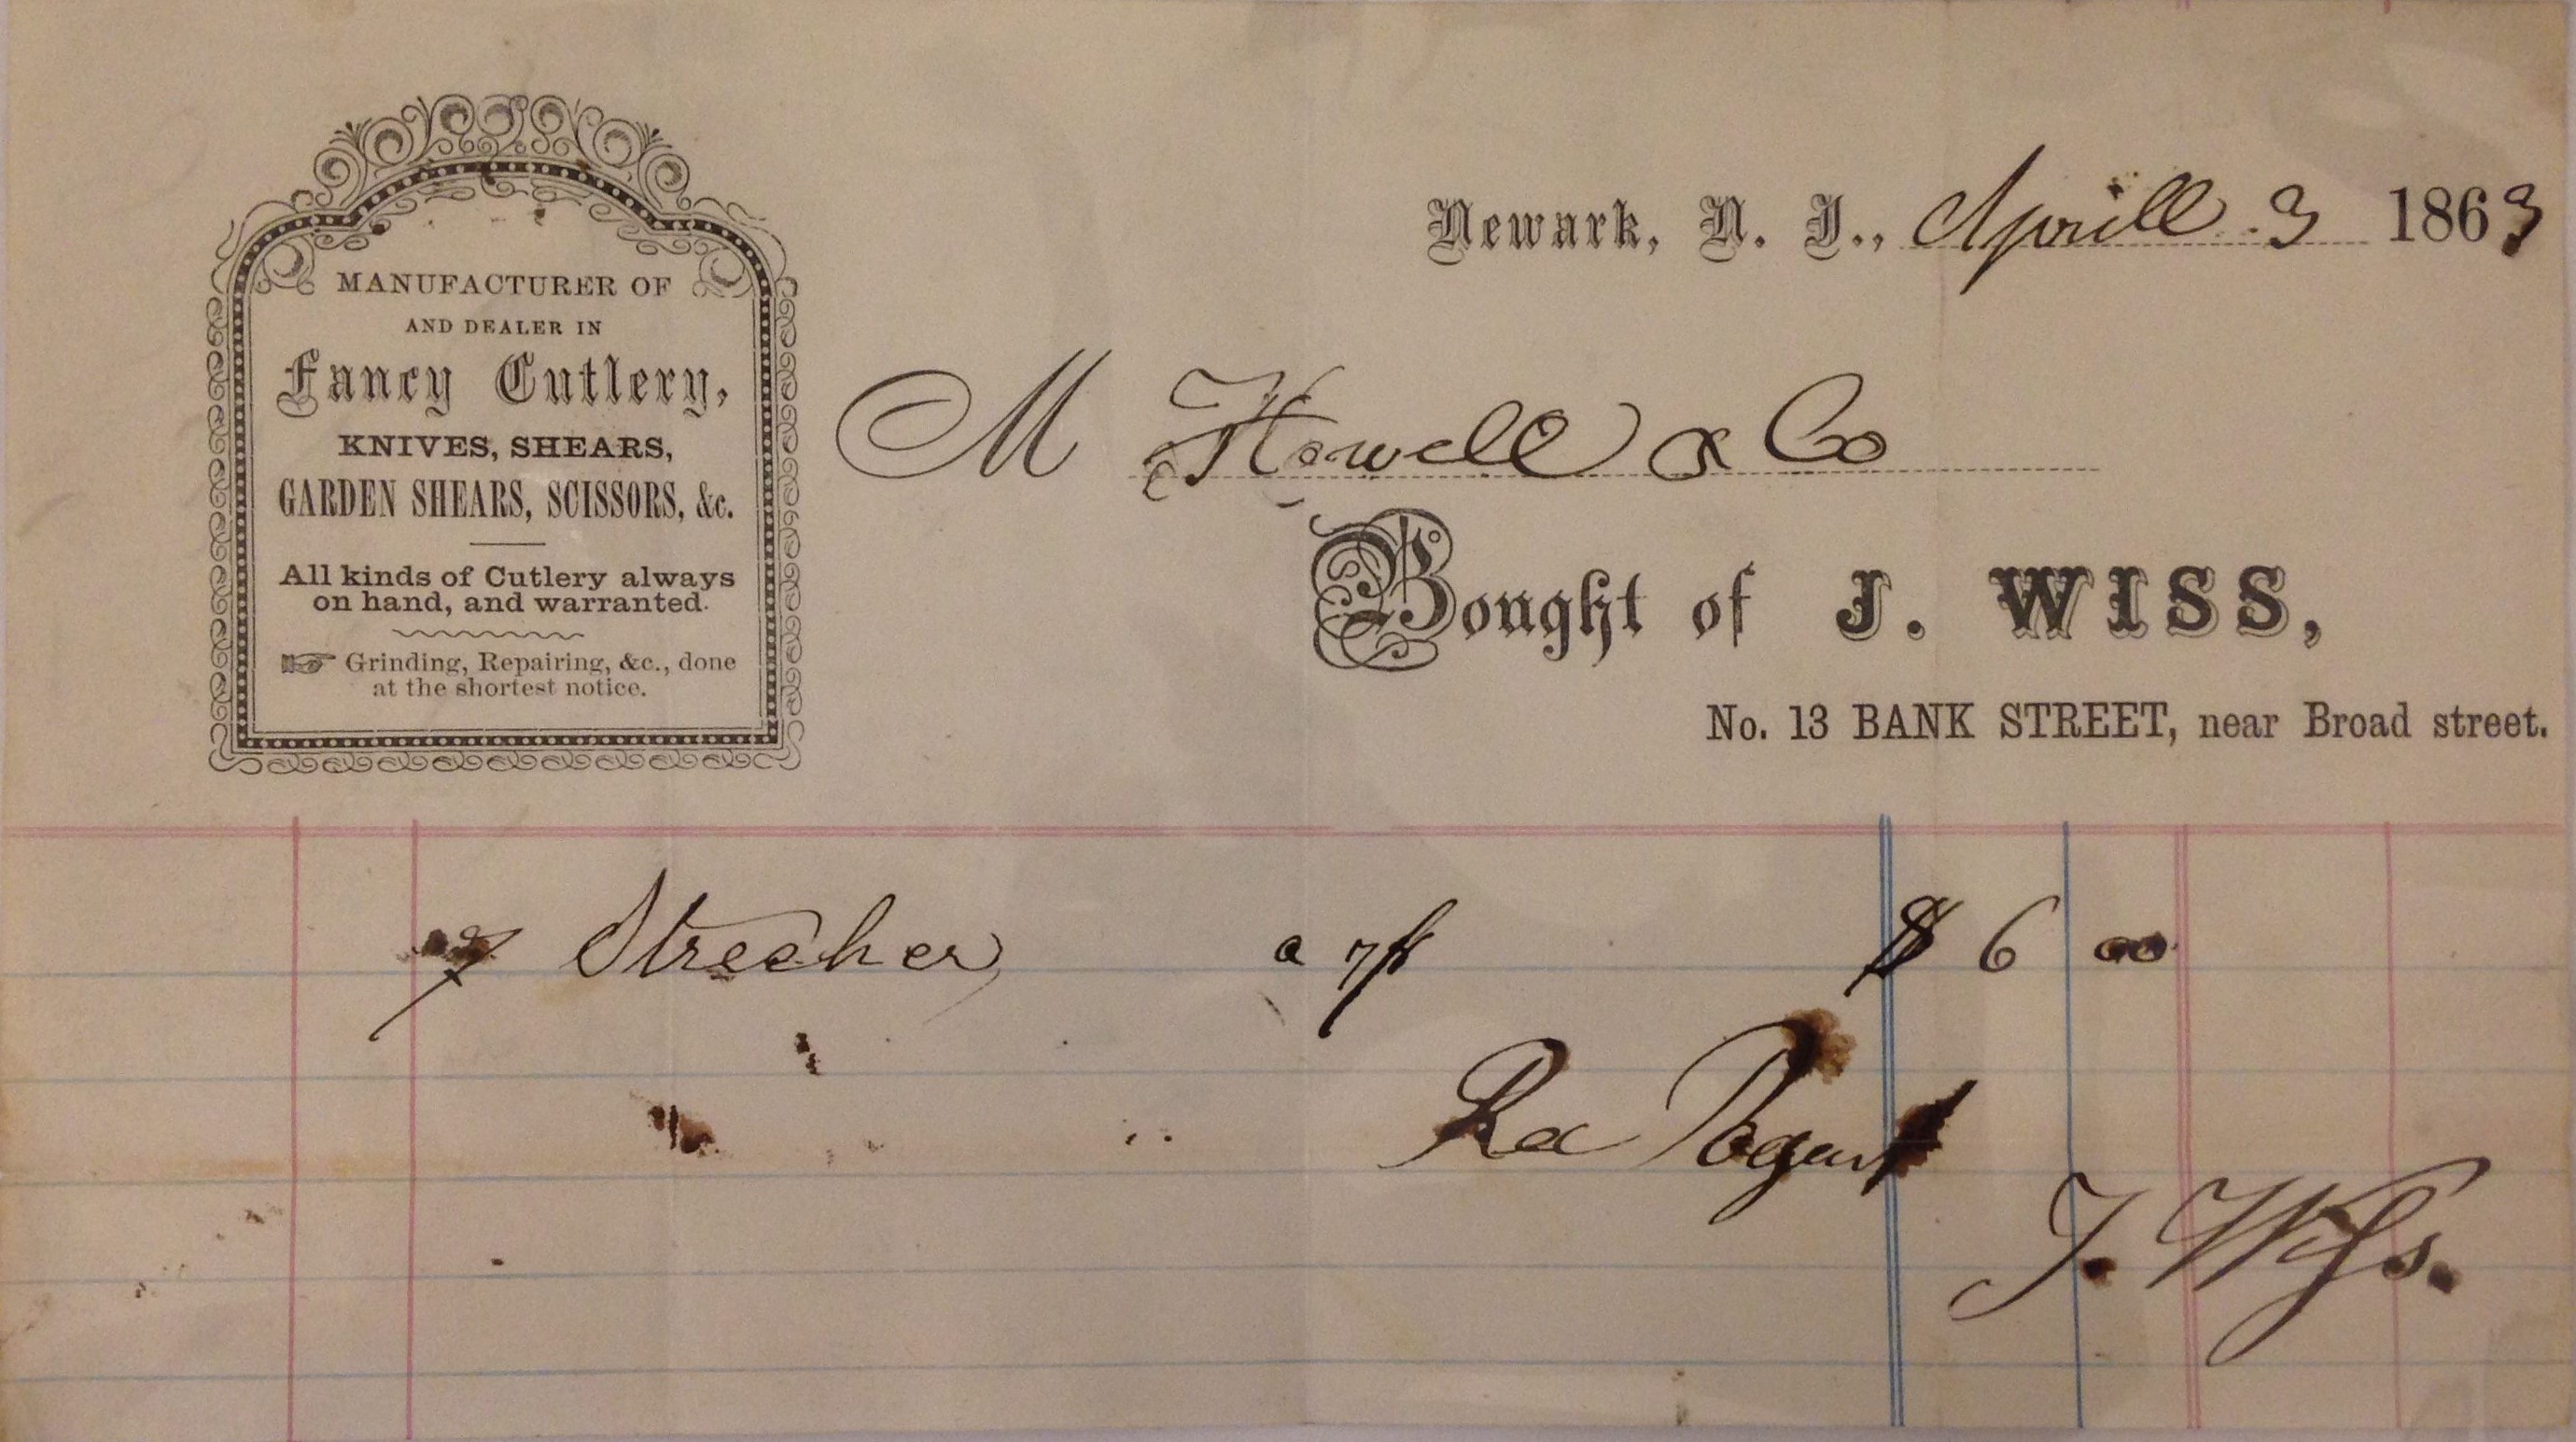 MANUFACTURER OF
AND DEALER IN
Fancy Cutlery,
KNIVES, SHEARS,
GARDEN SHEARS, SCISSORS, &c.
All kinds of Cutlery always
on hand, and warranted.
Grinding, Repairing, &c., done
at the shortest notice.
Newark, N. J., Aprill 3 1863
M Howell & Co
Bought of J. WISS,
No. 13 BANK STREET, near Broad street.
Strecher a $ 6 00
Rec
J. Wiss.